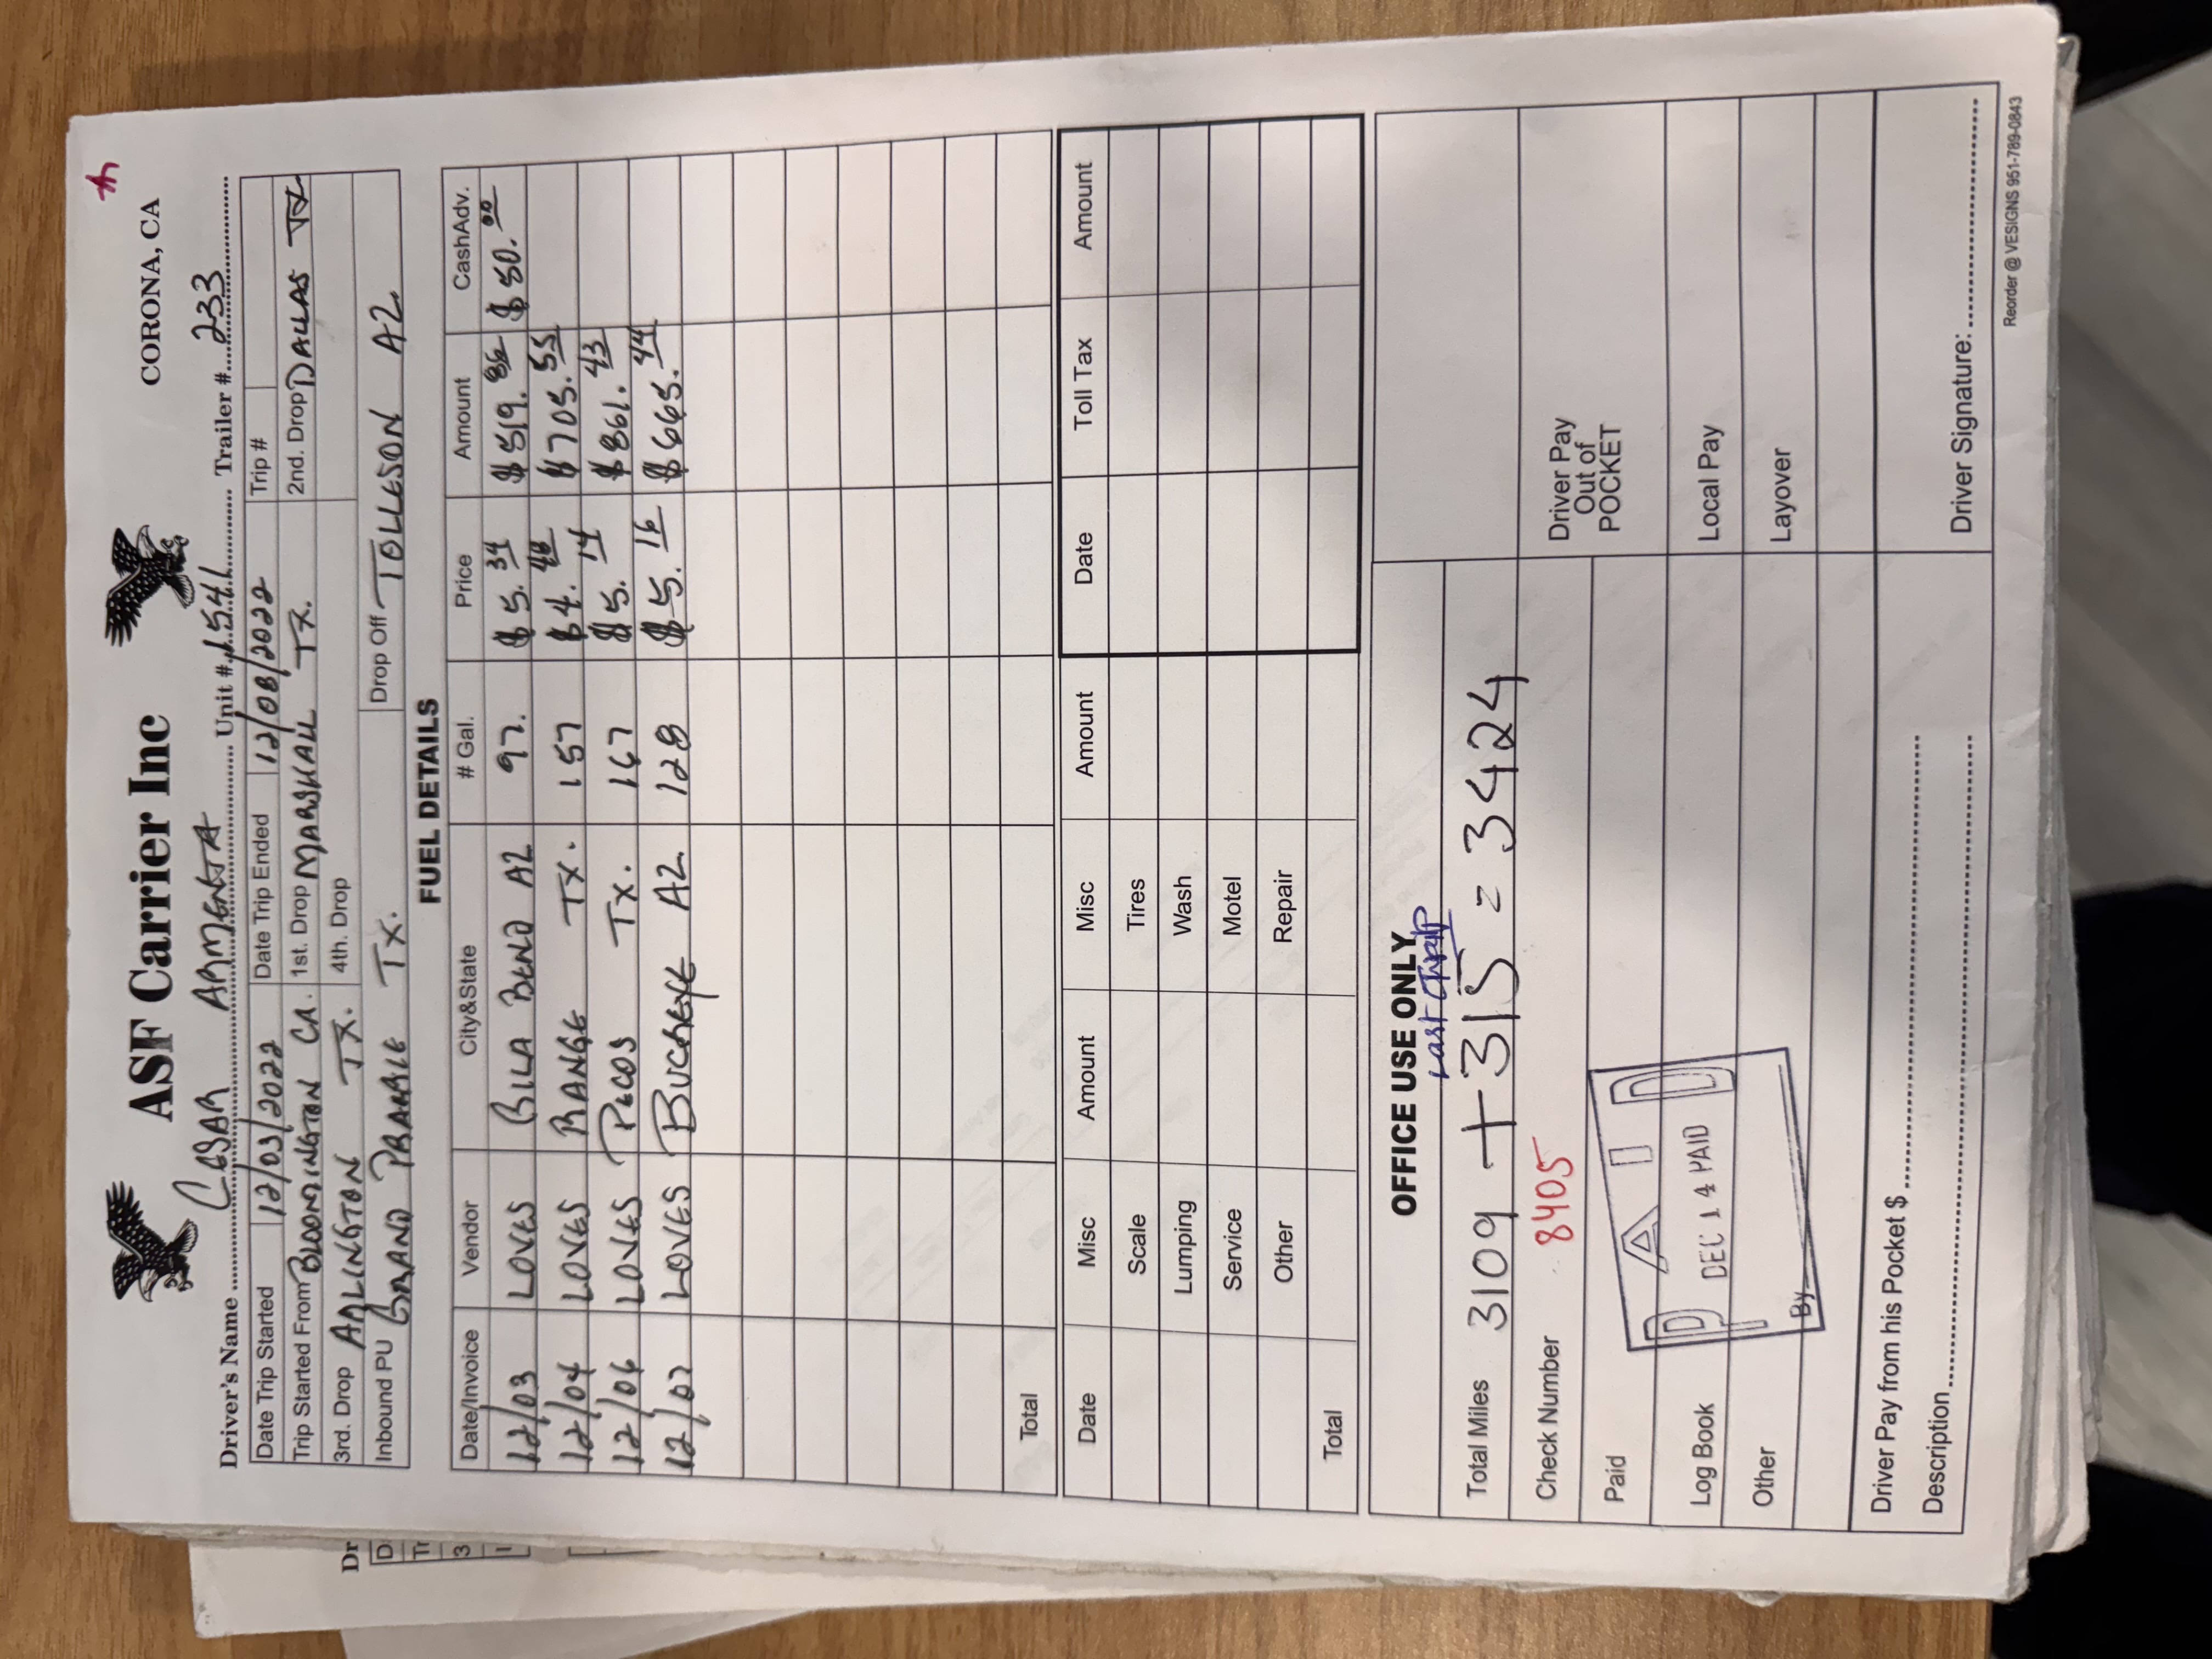 ASF Carrier Inc
CORONA, CA
Driver's Name CESAR ARMENTA Unit # 1541 Trailer # 233
Date Trip Started 12/03/2022 Date Trip Ended 12/08/2022 Trip #
Trip Started From BLOOMINGTON CA. 1st. Drop MARSHALL TX. 2nd. Drop DALLAS TX
3rd. Drop ARLINGTON TX. 4th. Drop
Inbound PU GRAND PRARRIE TX. Drop Off TOLLESON AZ
FUEL DETAILS
Date/Invoice Vendor City&State # Gal. Price Amount CashAdv.
12/03 LOVES GILA BEND AZ 97. $5.34 $519.86 $50.00
12/04 LOVES RANGE TX. 157 $4.48 $705.55
12/06 LOVES PECOS TX. 167 $5.14 $861.43
12/07 LOVES BUCKEYE AZ 128 $5.16 $665.44
Total
Date Misc Amount Misc Amount Date Toll Tax Amount
Scale Tires
Lumping Wash
Service Motel
Other Repair
Total
OFFICE USE ONLY
Last TRIP
Total Miles 3109 + 315 = 3424
Check Number 8405
Driver Pay
Out of
POCKET
Paid
PAID
DEC 14 PAID
By
Log Book
Local Pay
Other
Layover
Driver Pay from his Pocket $
Description
Driver Signature:
Reorder @ VESIGNS 951-789-0843
Dr
D
Tr
3
I